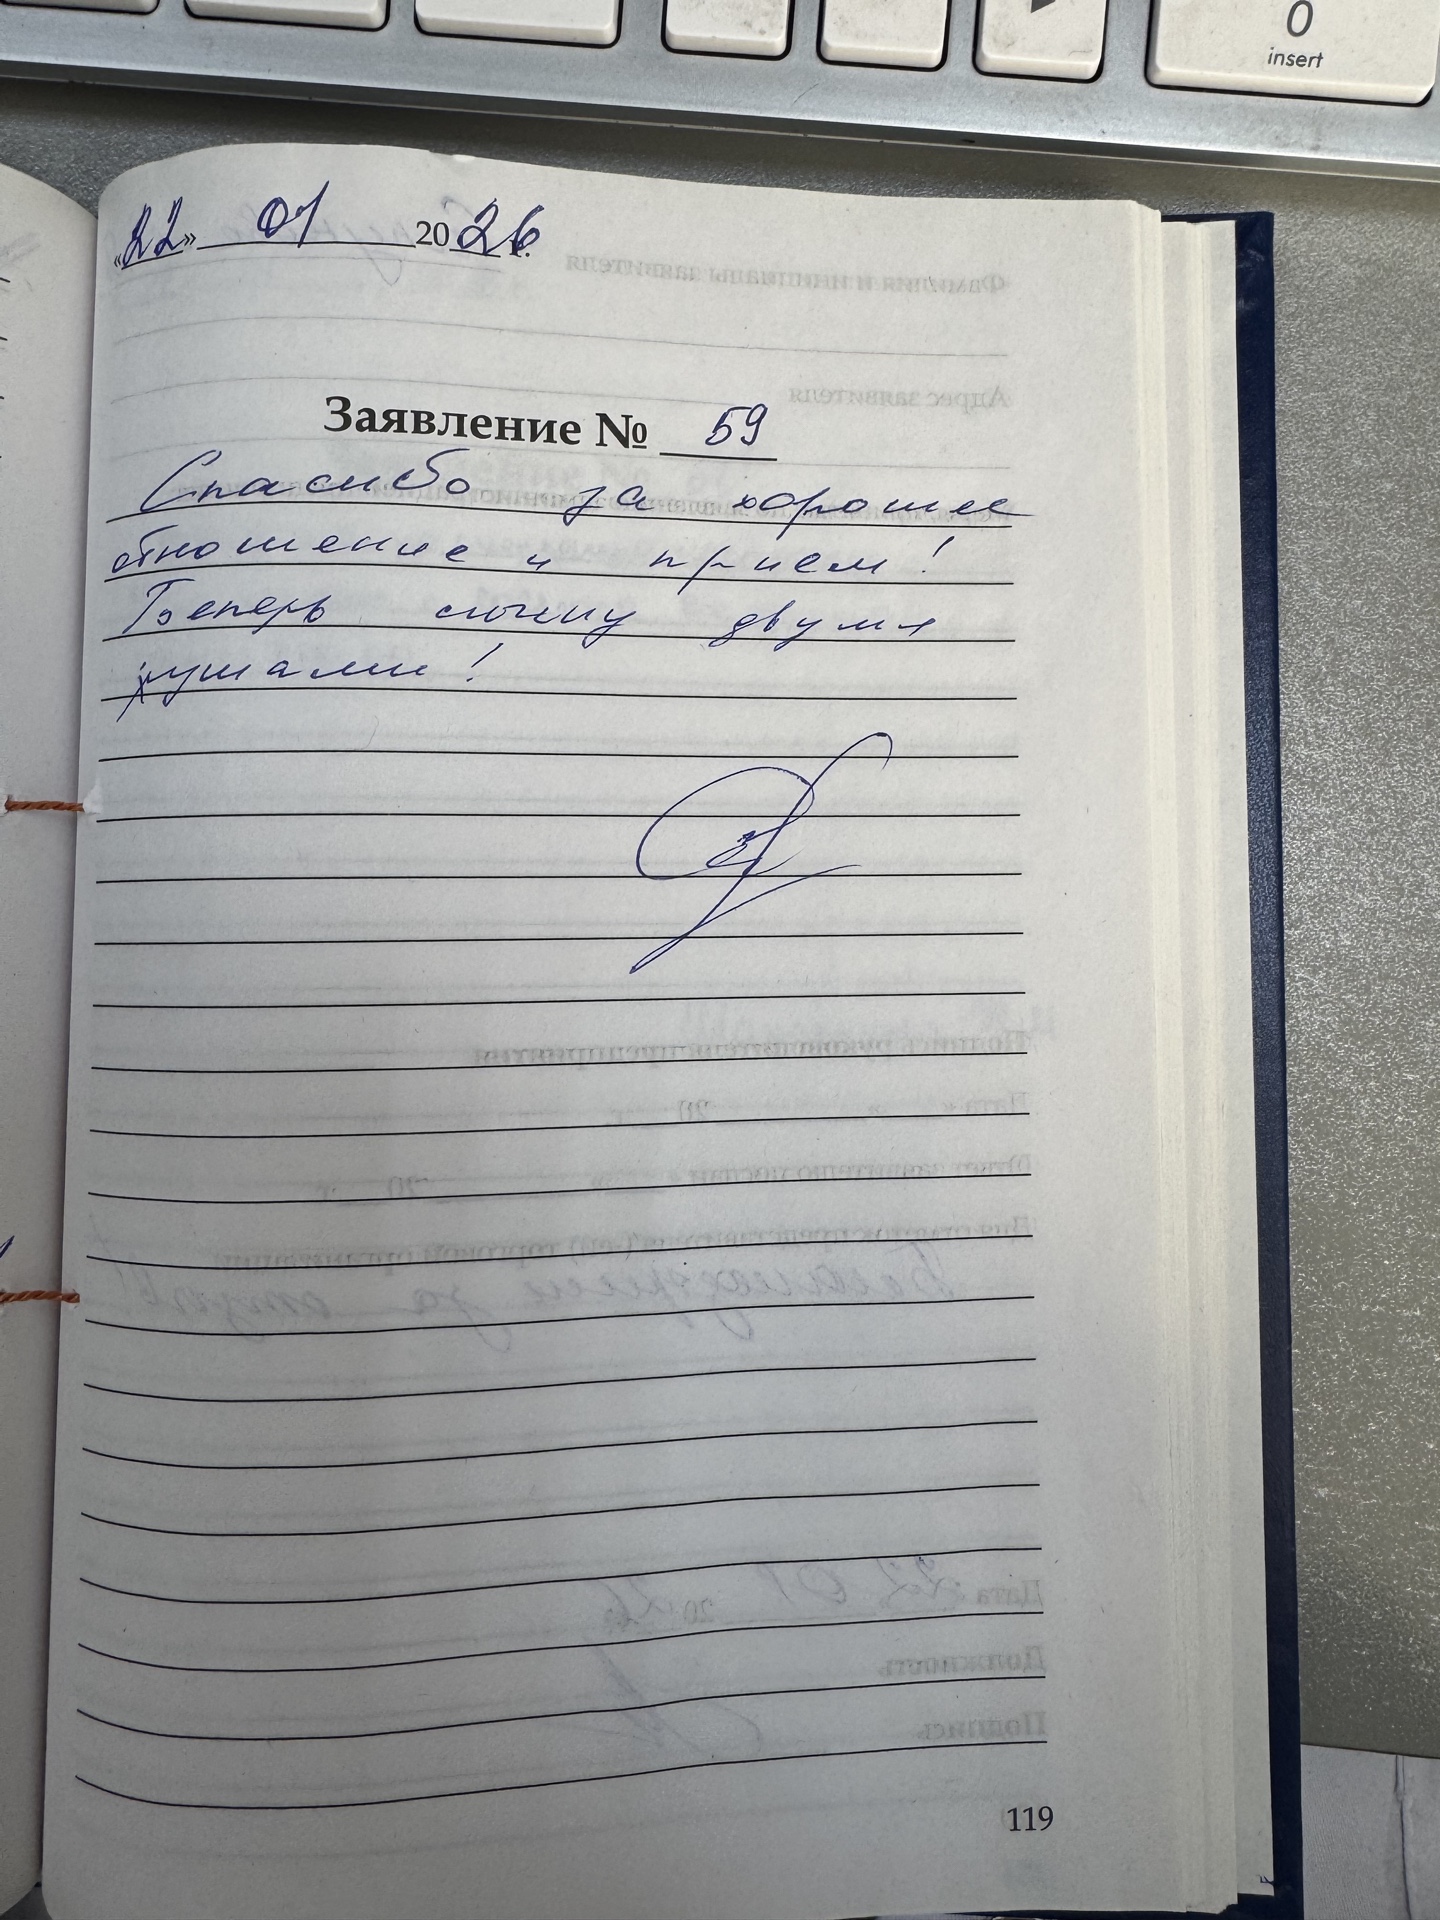 0
insert
«22» 01 2026 г.
Заявление № 59
Спасибо за хорошее
отношение и прием!
Теперь слышу двумя
ушами!
119